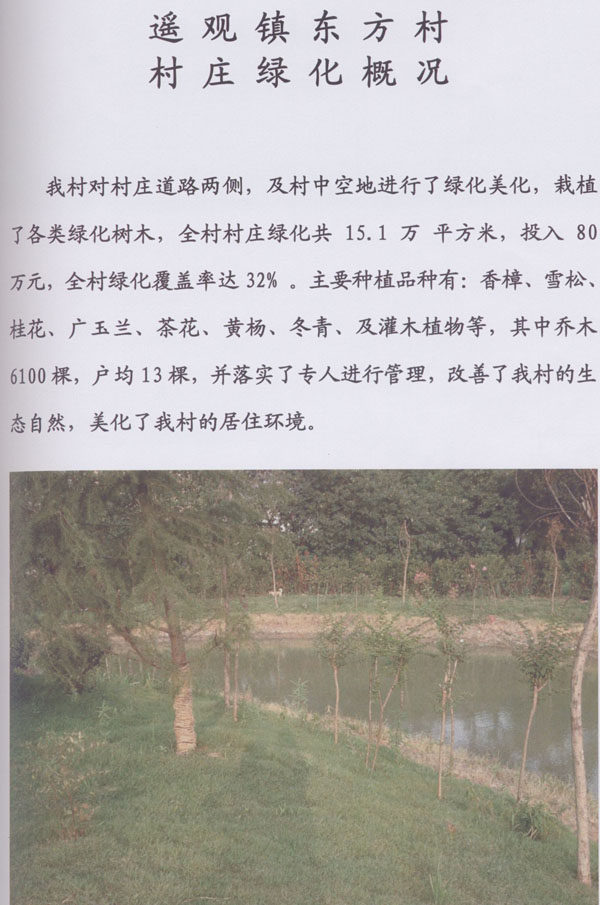 遥观镇东方村
村庄绿化概况
我村对村庄道路两侧，及村中空地进行了绿化美化，栽植
了各类绿化树木，全村村庄绿化共 15.1 万 平方米，投入 80
万元，全村绿化覆盖率达 32% 。主要种植品种有：香樟、雪松、
桂花、广玉兰、茶花、黄杨、冬青、及灌木植物等，其中乔木
6100 棵，户均 13 棵，并落实了专人进行管理，改善了我村的生
态自然，美化了我村的居住环境。